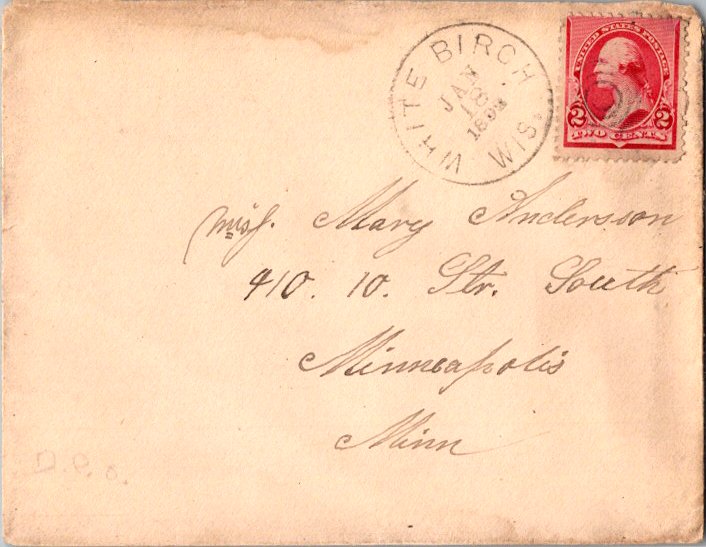 WHITE BIRCH WIS.
JAN
18
UNITED STATES POSTAGE
2 2
TWO CENTS
Miss. Mary Andersson
410. 10. Str. South
Minneapolis
Minn
D.P.O.